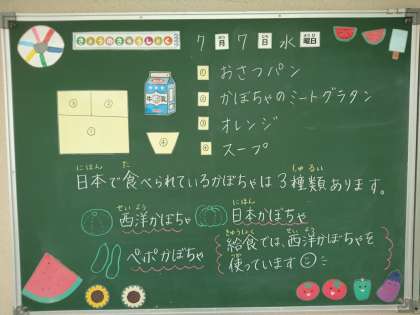 きょうのきゅうしょく
7月7日水曜日
① おさつパン
② かぼちゃのミートグラタン
③ オレンジ
④ スープ
③ ②
①
牛乳
④
にほん た しゅるい
日本で食べられているかぼちゃは3種類あります。
せいよう にほん
西洋かぼちゃ 日本かぼちゃ
ペポかぼちゃ
きゅうしょく せいよう
給食では、西洋かぼちゃを
つか
使っています